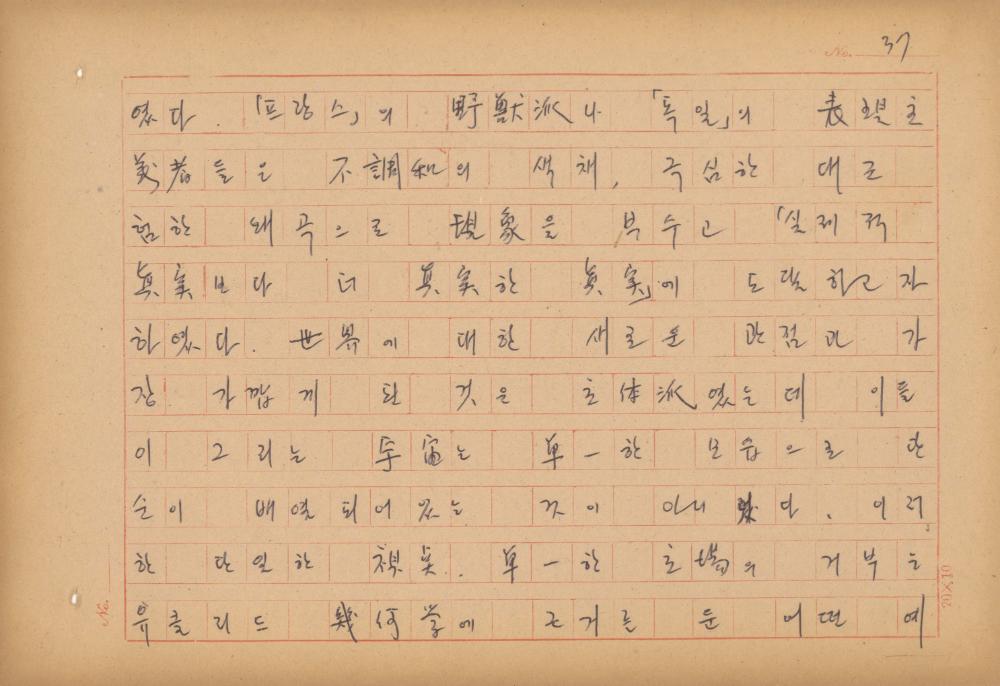 No. 37
였다. 「프랑스」의 野獸派나 「독일」의 表現主
義者들은 不調和의 색채, 극심한 대로
험한 왜곡으로 現象을 부수고 「실제적
眞実보다 더 眞実한 眞実」에 도달하고자
하였다. 世界에 대한 새로운 관점과 가
장 가깝게 된 것은 立体派였는데 이들
이 그리는 宇宙는 単一한 모습으로 단
순이 배열되어 있는 것이 아니었다. 이러
한 단일한 視点. 単一한 立場의 거부는
유클리드 幾何学에 근거를 둔 어떤 예
No.
20×10